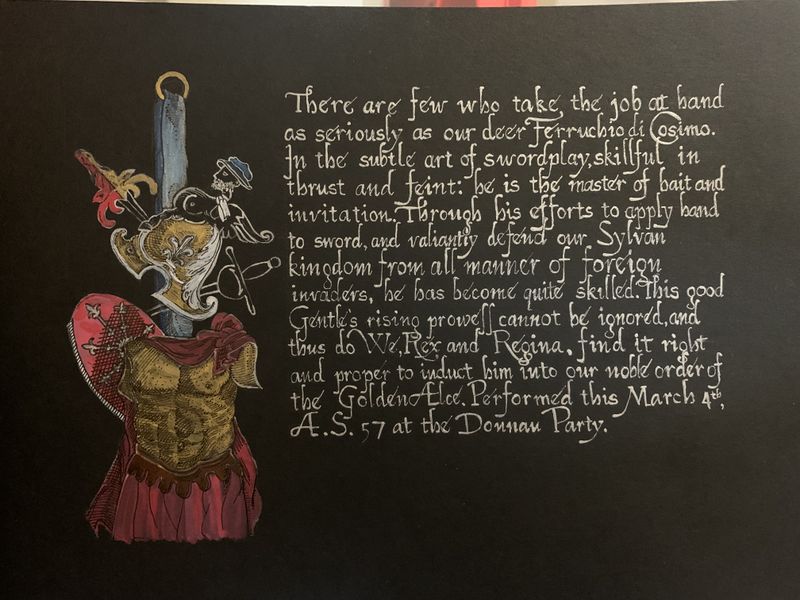 There are few who take the job at hand
as seriously as our deer Ferruchio di Cosimo.
In the subtle art of swordplay, skillful in
thrust and feint: he is the master of bait and
invitation. Through his efforts to apply hand
to sword, and valiantly defend our Sylvan
kingdom from all manner of foreign
invaders, he has become quite skilled. This good
Gentle's rising prowess cannot be ignored, and
thus do We, Rex and Regina, find it right
and proper to induct him into our noble order of
the Golden Ælce. Performed this March 4th,
Æ.S. 57 at the Donnau Party.